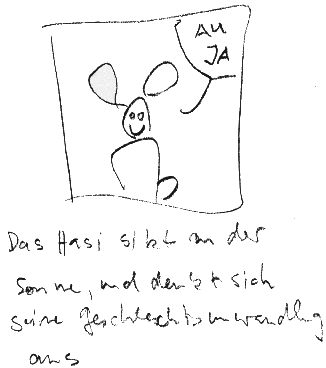 AU
JA
Das Hasi sitzt an der
Sonne, und denkt sich
seine Geschlechtsumwandlung
aus